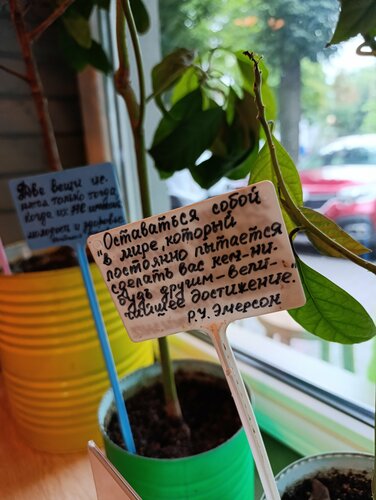 Две вещи це-
нятся только тогда,
когда их уже нет:
молодость и здоровье
Оставаться собой
в мире, который
постоянно пытается
сделать вас кем-ни-
будь другим – вели-
чайшее достижение.
Р.У. Эмерсон